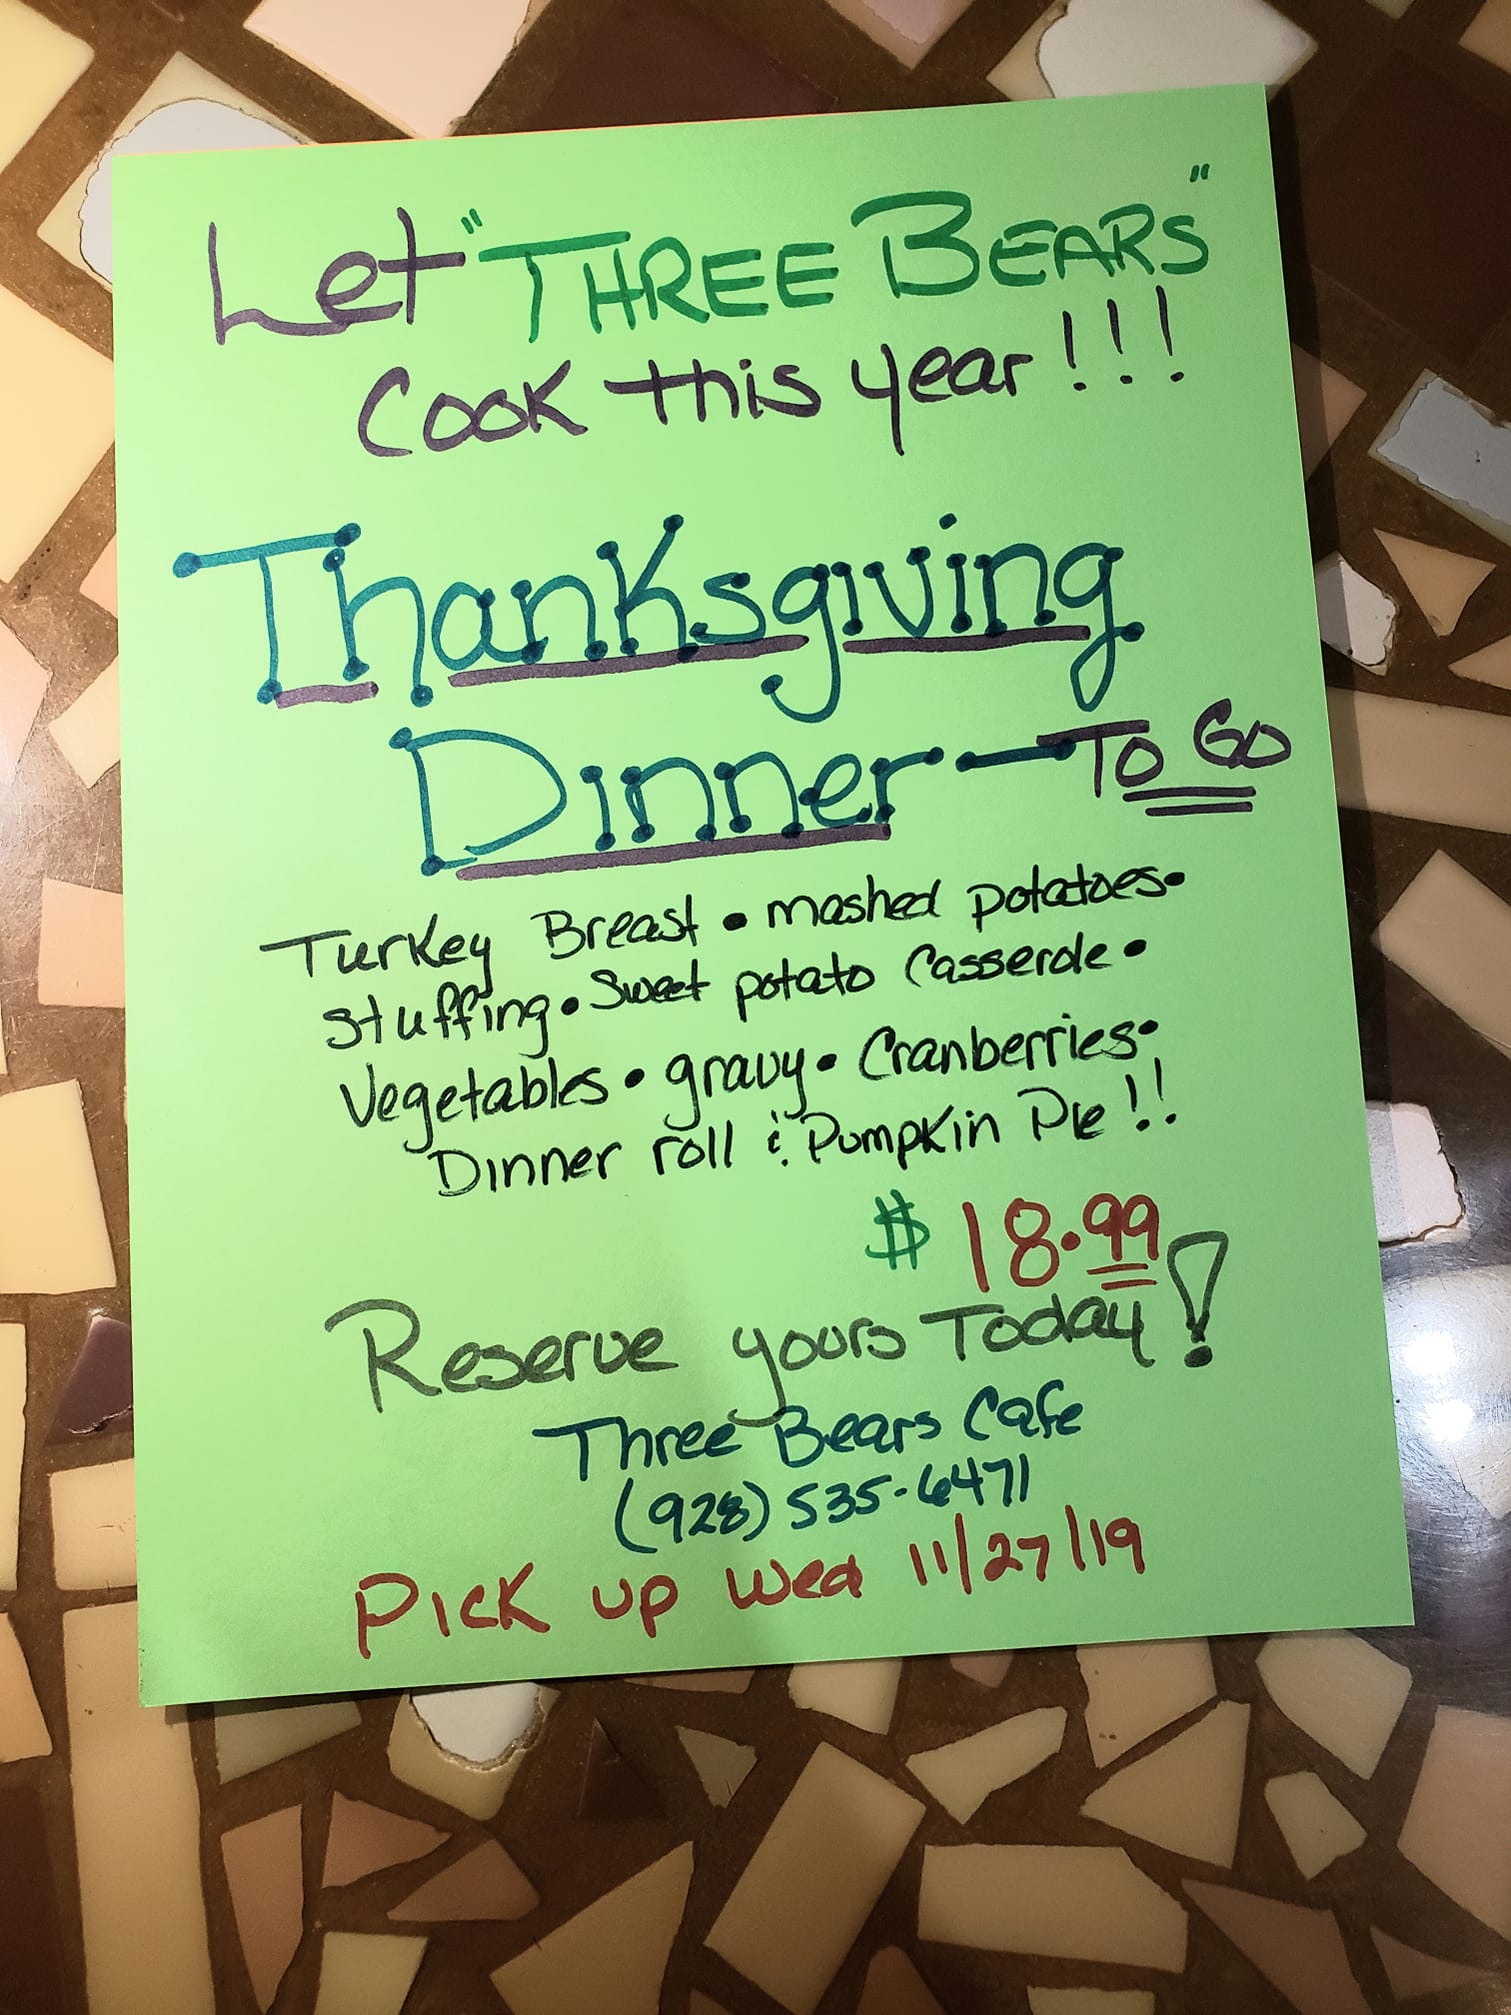 Let "THREE BEARS"
Cook this year!!!
Thanksgiving
Dinner - To Go
Turkey Breast • mashed potatoes •
stuffing • Sweet potato Casserole •
Vegetables • gravy • Cranberries •
Dinner roll & Pumpkin Pie!!
$ 18.99
Reserve yours Today!
Three Bears Cafe
(928) 535-6471
Pick up Wed 11/27/19